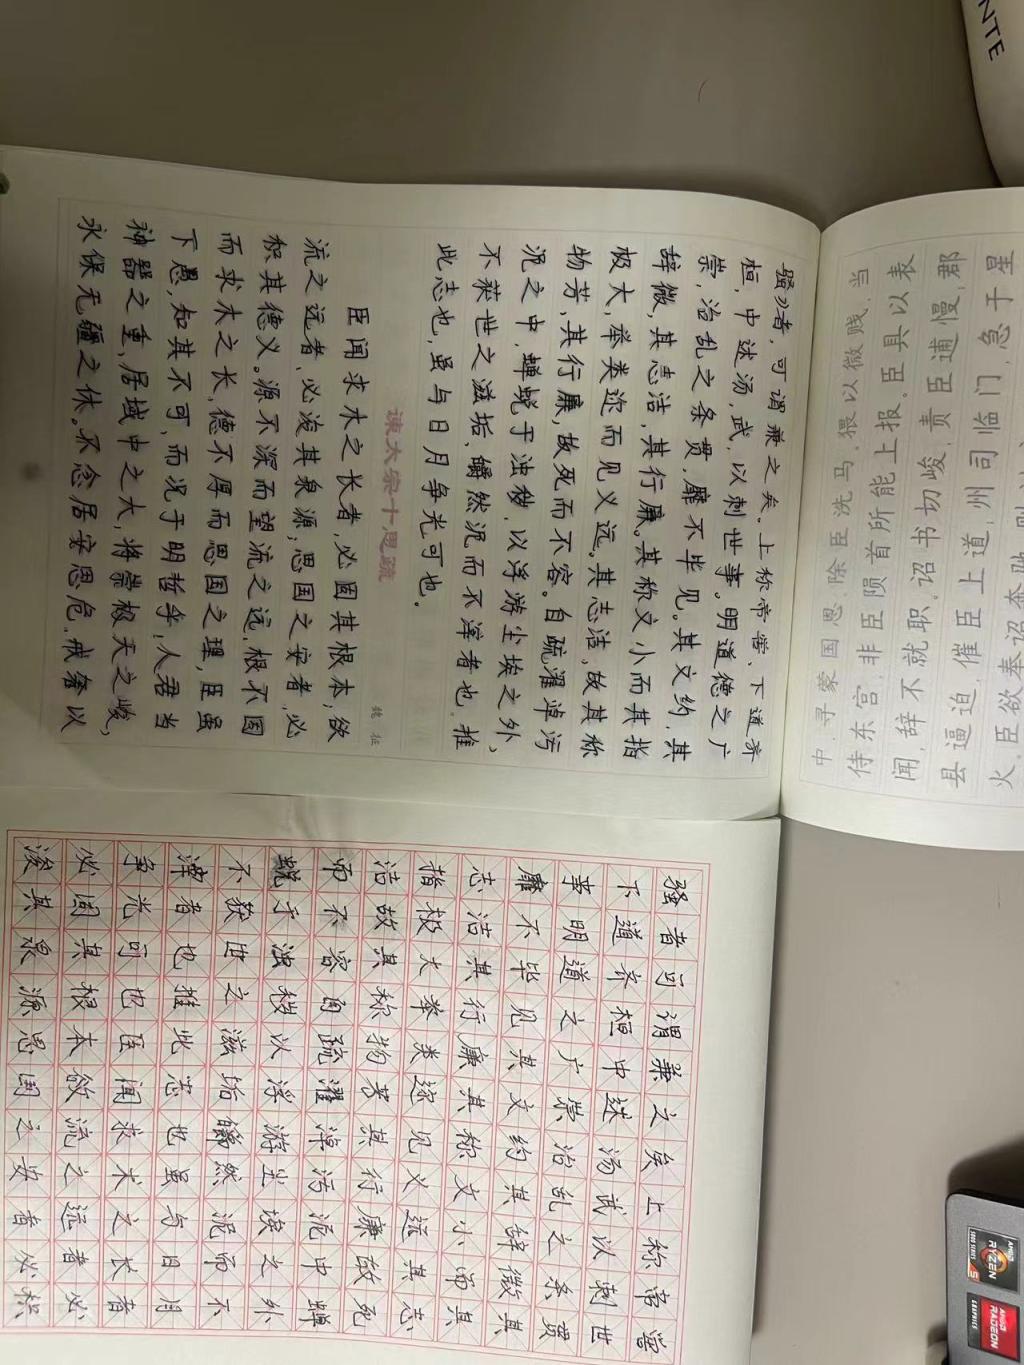 骚》者，可谓兼之矣。上称帝喾，下道齐
桓，中述汤，武，以刺世事。明道德之广
崇，治乱之条贯，靡不毕见。其文约，其
辞微，其志洁，其行廉。其称文小而其指
极大，举类迩而见义远。其志洁，故其称
物芳，其行廉，故死而不容。自疏濯淖污
泥之中，蝉蜕于浊秽，以浮游尘埃之外，
不获世之滋垢，皭然泥而不滓者也。推
此志也，虽与日月争光可也。
谏太宗十思疏
魏征
臣闻求木之长者，必固其根本；欲
流之远者，必浚其泉源；思国之安者，必
积其德义。源不深而望流之远，根不固
而求木之长，德不厚而思国之理，臣虽
下愚，知其不可，而况于明哲乎，人君当
神器之重，居域中之大，将崇极天之峻，
永保无疆之休。不念居安思危，戒奢以
中，寻蒙国恩，除臣洗马，猥以微贱，当
侍东宫，非臣陨首所能上报。臣具以表
闻，辞不就职。诏书切峻，责臣逋慢；郡
县逼迫，催臣上道；州司临门，急于星
火。臣欲奉诏奔驰，则
骚者可谓兼之矣上称帝喾
下道齐桓中述汤武以刺世
事明道之广崇治乱之条贯
靡不毕见其文约其辞微其
志洁其行廉其称文小而其
指极大举类迩见义远其志
洁故其称物芳其行廉故死
而不容自疏濯淖污泥中蝉
蜕于浊秽以浮游尘埃之外
不获世之滋垢皭然泥而不
滓者也推此志也虽与日月
争光可也臣闻求木之长者
必固其根本欲流之远者必
浚其泉源思国之安者必积
NTE
AMD
RYZEN
5
5000 SERIES
AMD
RADEON
GRAPHICS